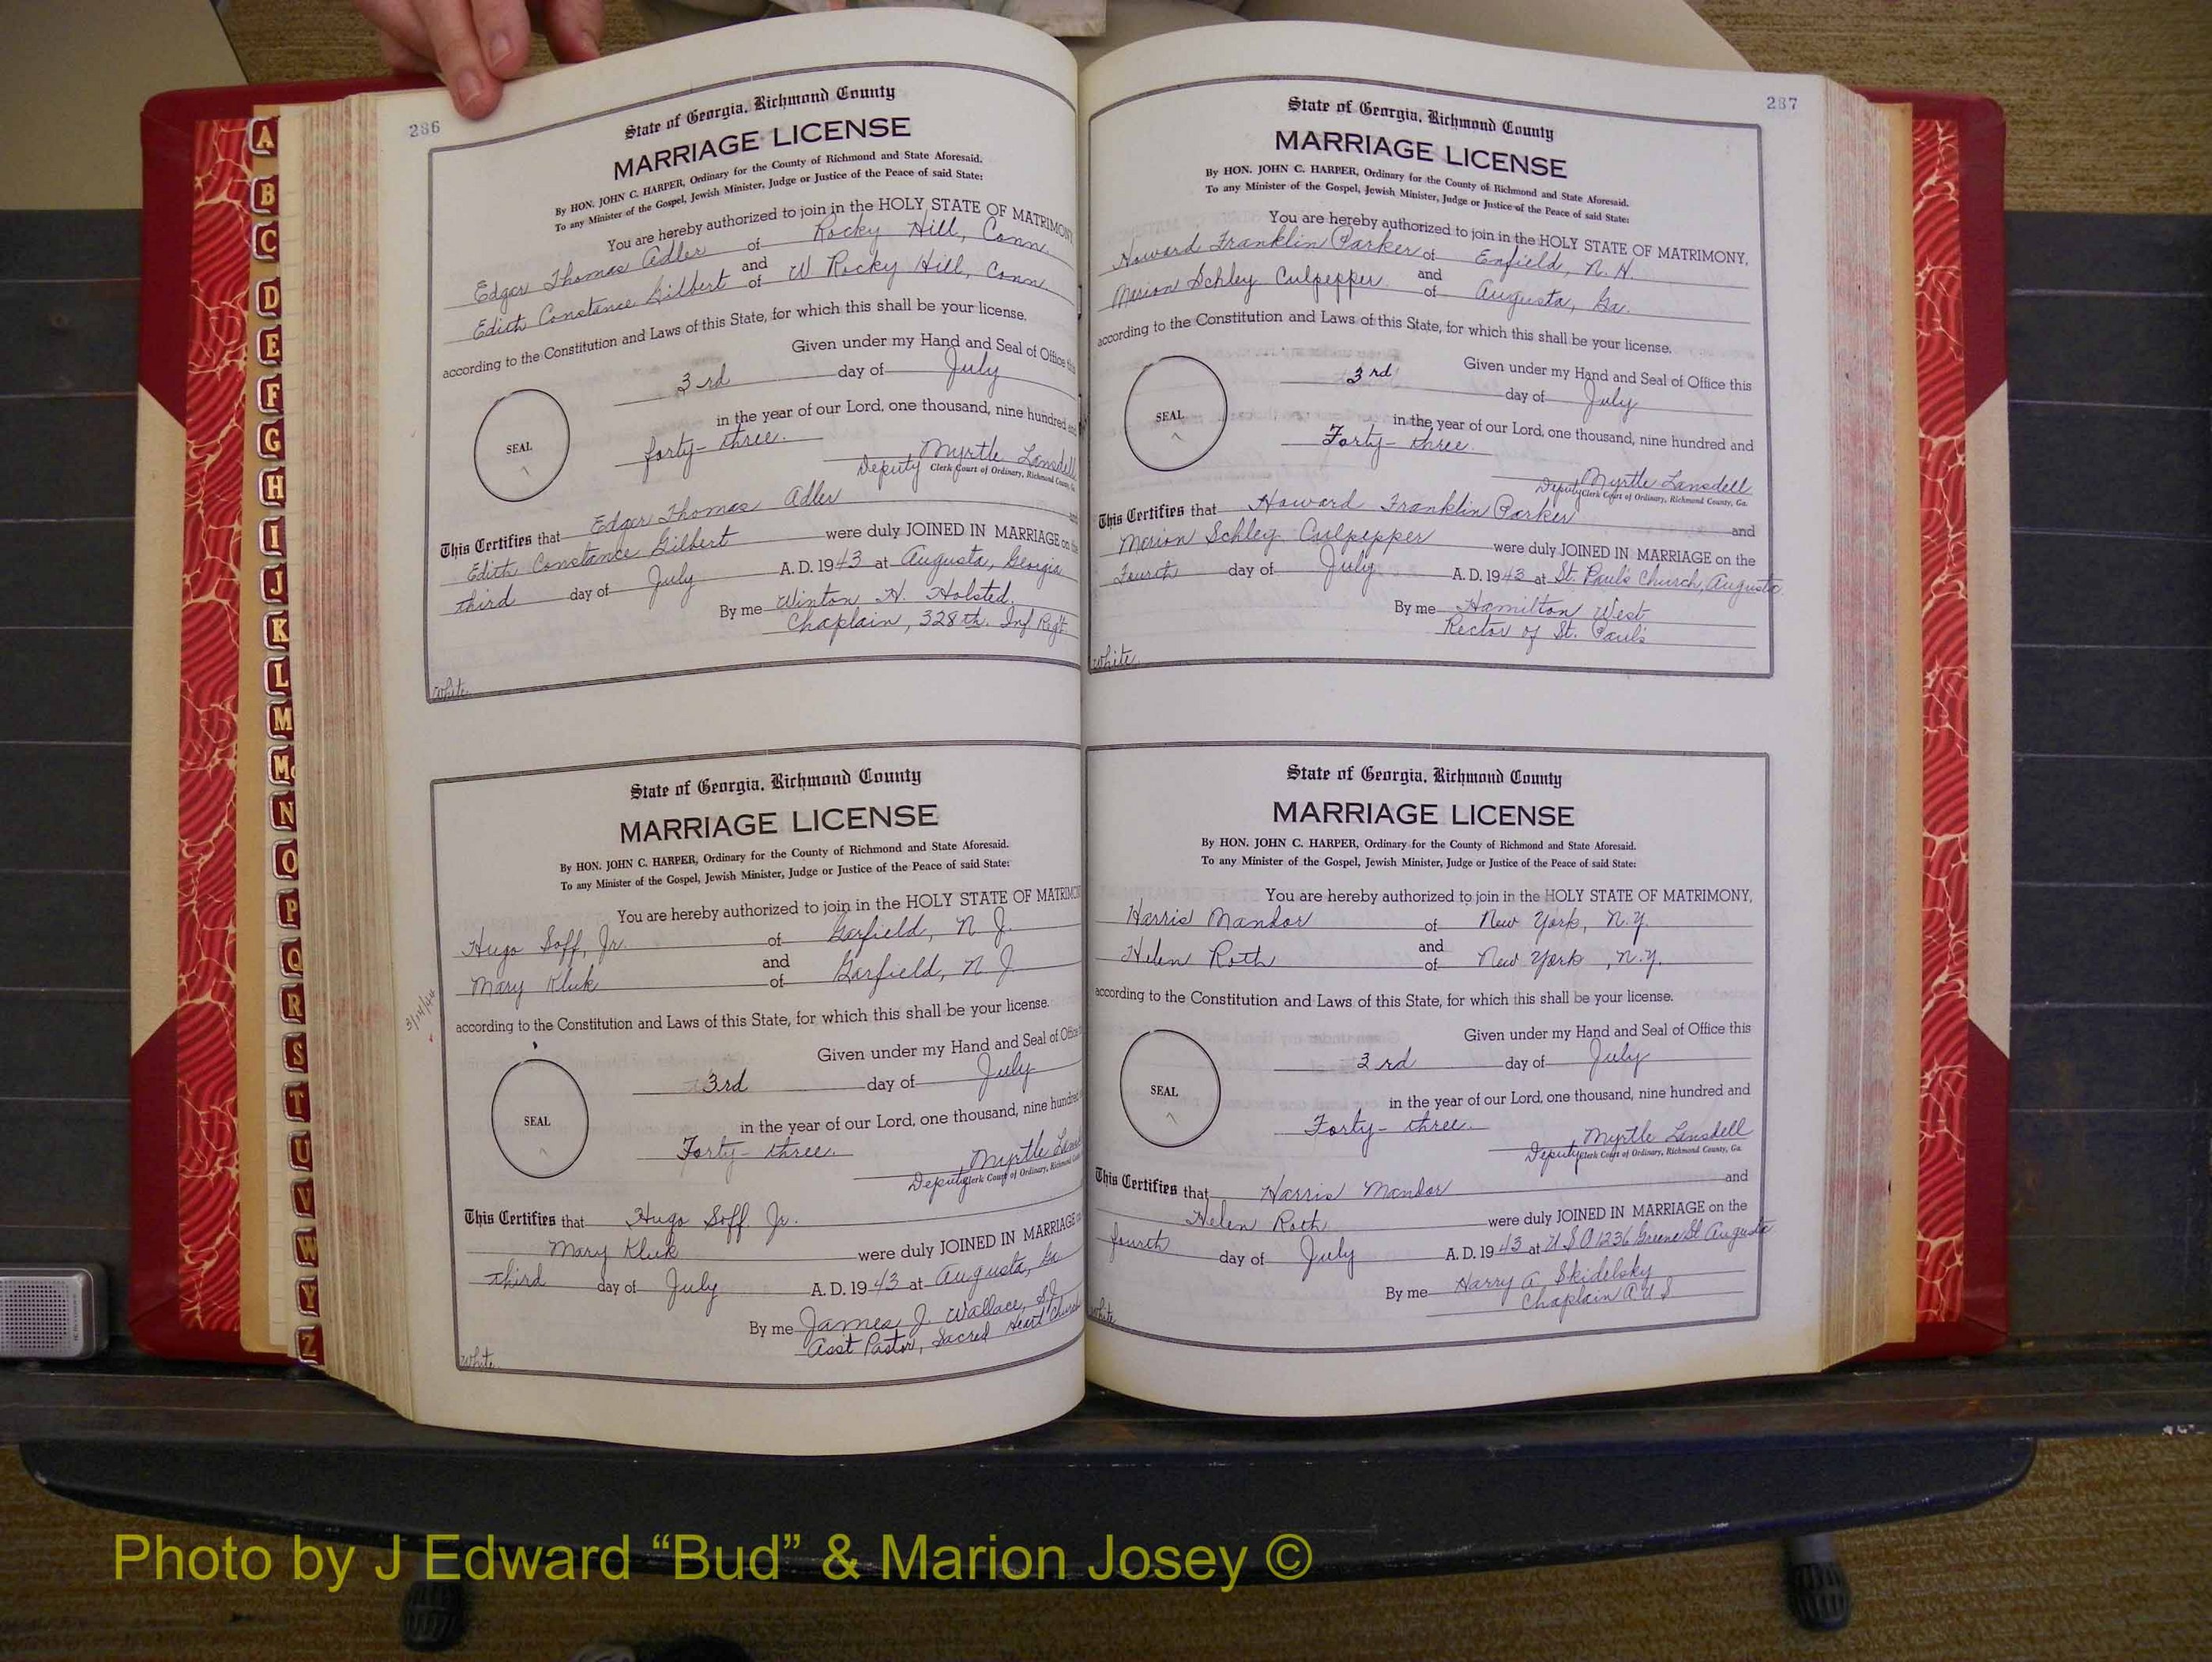 286
State of Georgia, Richmond County
MARRIAGE LICENSE
By HON. JOHN C. HARPER, Ordinary for the County of Richmond and State Aforesaid.
To any Minister of the Gospel, Jewish Minister, Judge or Justice of the Peace of said State:
You are hereby authorized to join in the HOLY STATE OF MATRIMONY
Edgar Thomas Adler of Rocky Hill, Conn.
and
Edith Constance Gilbert of W Rocky Hill, Conn
according to the Constitution and Laws of this State, for which this shall be your license.
Given under my Hand and Seal of Office this
3rd day of July
SEAL
in the year of our Lord, one thousand, nine hundred and
forty-three.
Myrtle Lansdell
Deputy Clerk Court of Ordinary, Richmond County, Ga.
This Certifies that Edgar Thomas Adler and
Edith Constance Gilbert were duly JOINED IN MARRIAGE on the
third day of July A. D. 1943 at Augusta, Georgia
By me Winton H. Halsted.
Chaplain, 328th. Inf Regt.
White
State of Georgia, Richmond County
MARRIAGE LICENSE
By HON. JOHN C. HARPER, Ordinary for the County of Richmond and State Aforesaid.
To any Minister of the Gospel, Jewish Minister, Judge or Justice of the Peace of said State:
You are hereby authorized to join in the HOLY STATE OF MATRIMO
Hugo Soff, Jr. of Garfield, N J.
and
Mary Kluk of Garfield, N J.
3/14/44
according to the Constitution and Laws of this State, for which this shall be your license.
Given under my Hand and Seal of Office
3rd day of July
SEAL
in the year of our Lord, one thousand, nine hundred
Forty-three.
Myrtle Lans
Deputy Clerk Court of Ordinary, Richmond
This Certifies that Hugo Soff Jr.
Mary Kluk were duly JOINED IN MARRIAGE
third day of July A. D. 1943 at Augusta, Ga
By me James J Wallace, S.J.
Asst Pastor, Sacred Heart Church
White
287
State of Georgia, Richmond County
MARRIAGE LICENSE
By HON. JOHN C. HARPER, Ordinary for the County of Richmond and State Aforesaid.
To any Minister of the Gospel, Jewish Minister, Judge or Justice of the Peace of said State:
You are hereby authorized to join in the HOLY STATE OF MATRIMONY,
Howard Franklin Parker of Enfield, N. H.
and
Marion Schley Culpepper of Augusta, Ga.
according to the Constitution and Laws of this State, for which this shall be your license.
Given under my Hand and Seal of Office this
3rd day of July
SEAL
in the year of our Lord, one thousand, nine hundred and
Forty-three.
Myrtle Lansdell
Deputy Clerk Court of Ordinary, Richmond County, Ga.
This Certifies that Howard Franklin Parker and
Marion Schley Culpepper were duly JOINED IN MARRIAGE on the
Fourth day of July A. D. 1943 at St. Paul's Church, Augusta
By me Hamilton West
Rector of St. Paul's
White
State of Georgia, Richmond County
MARRIAGE LICENSE
By HON. JOHN C. HARPER, Ordinary for the County of Richmond and State Aforesaid.
To any Minister of the Gospel, Jewish Minister, Judge or Justice of the Peace of said State:
You are hereby authorized to join in the HOLY STATE OF MATRIMONY,
Harris Mandor of New York, N.Y.
and
Helen Roth of New York, N.Y.
according to the Constitution and Laws of this State, for which this shall be your license.
Given under my Hand and Seal of Office this
3rd day of July
SEAL
in the year of our Lord, one thousand, nine hundred and
Forty-three.
Myrtle Lansdell
Deputy Clerk Court of Ordinary, Richmond County, Ga.
This Certifies that Harris Mandor and
Helen Roth were duly JOINED IN MARRIAGE on the
fourth day of July A. D. 1943 at U S O 1236 Greene St Augusta
By me Harry A. Skidelsky
Chaplain A U S
White
A
B
C
D
E
F
G
H
I
J
K
L
M
Mc
N
O
P
Q
R
S
T
U
V
W
Y
Z
Photo by J Edward “Bud” & Marion Josey ©